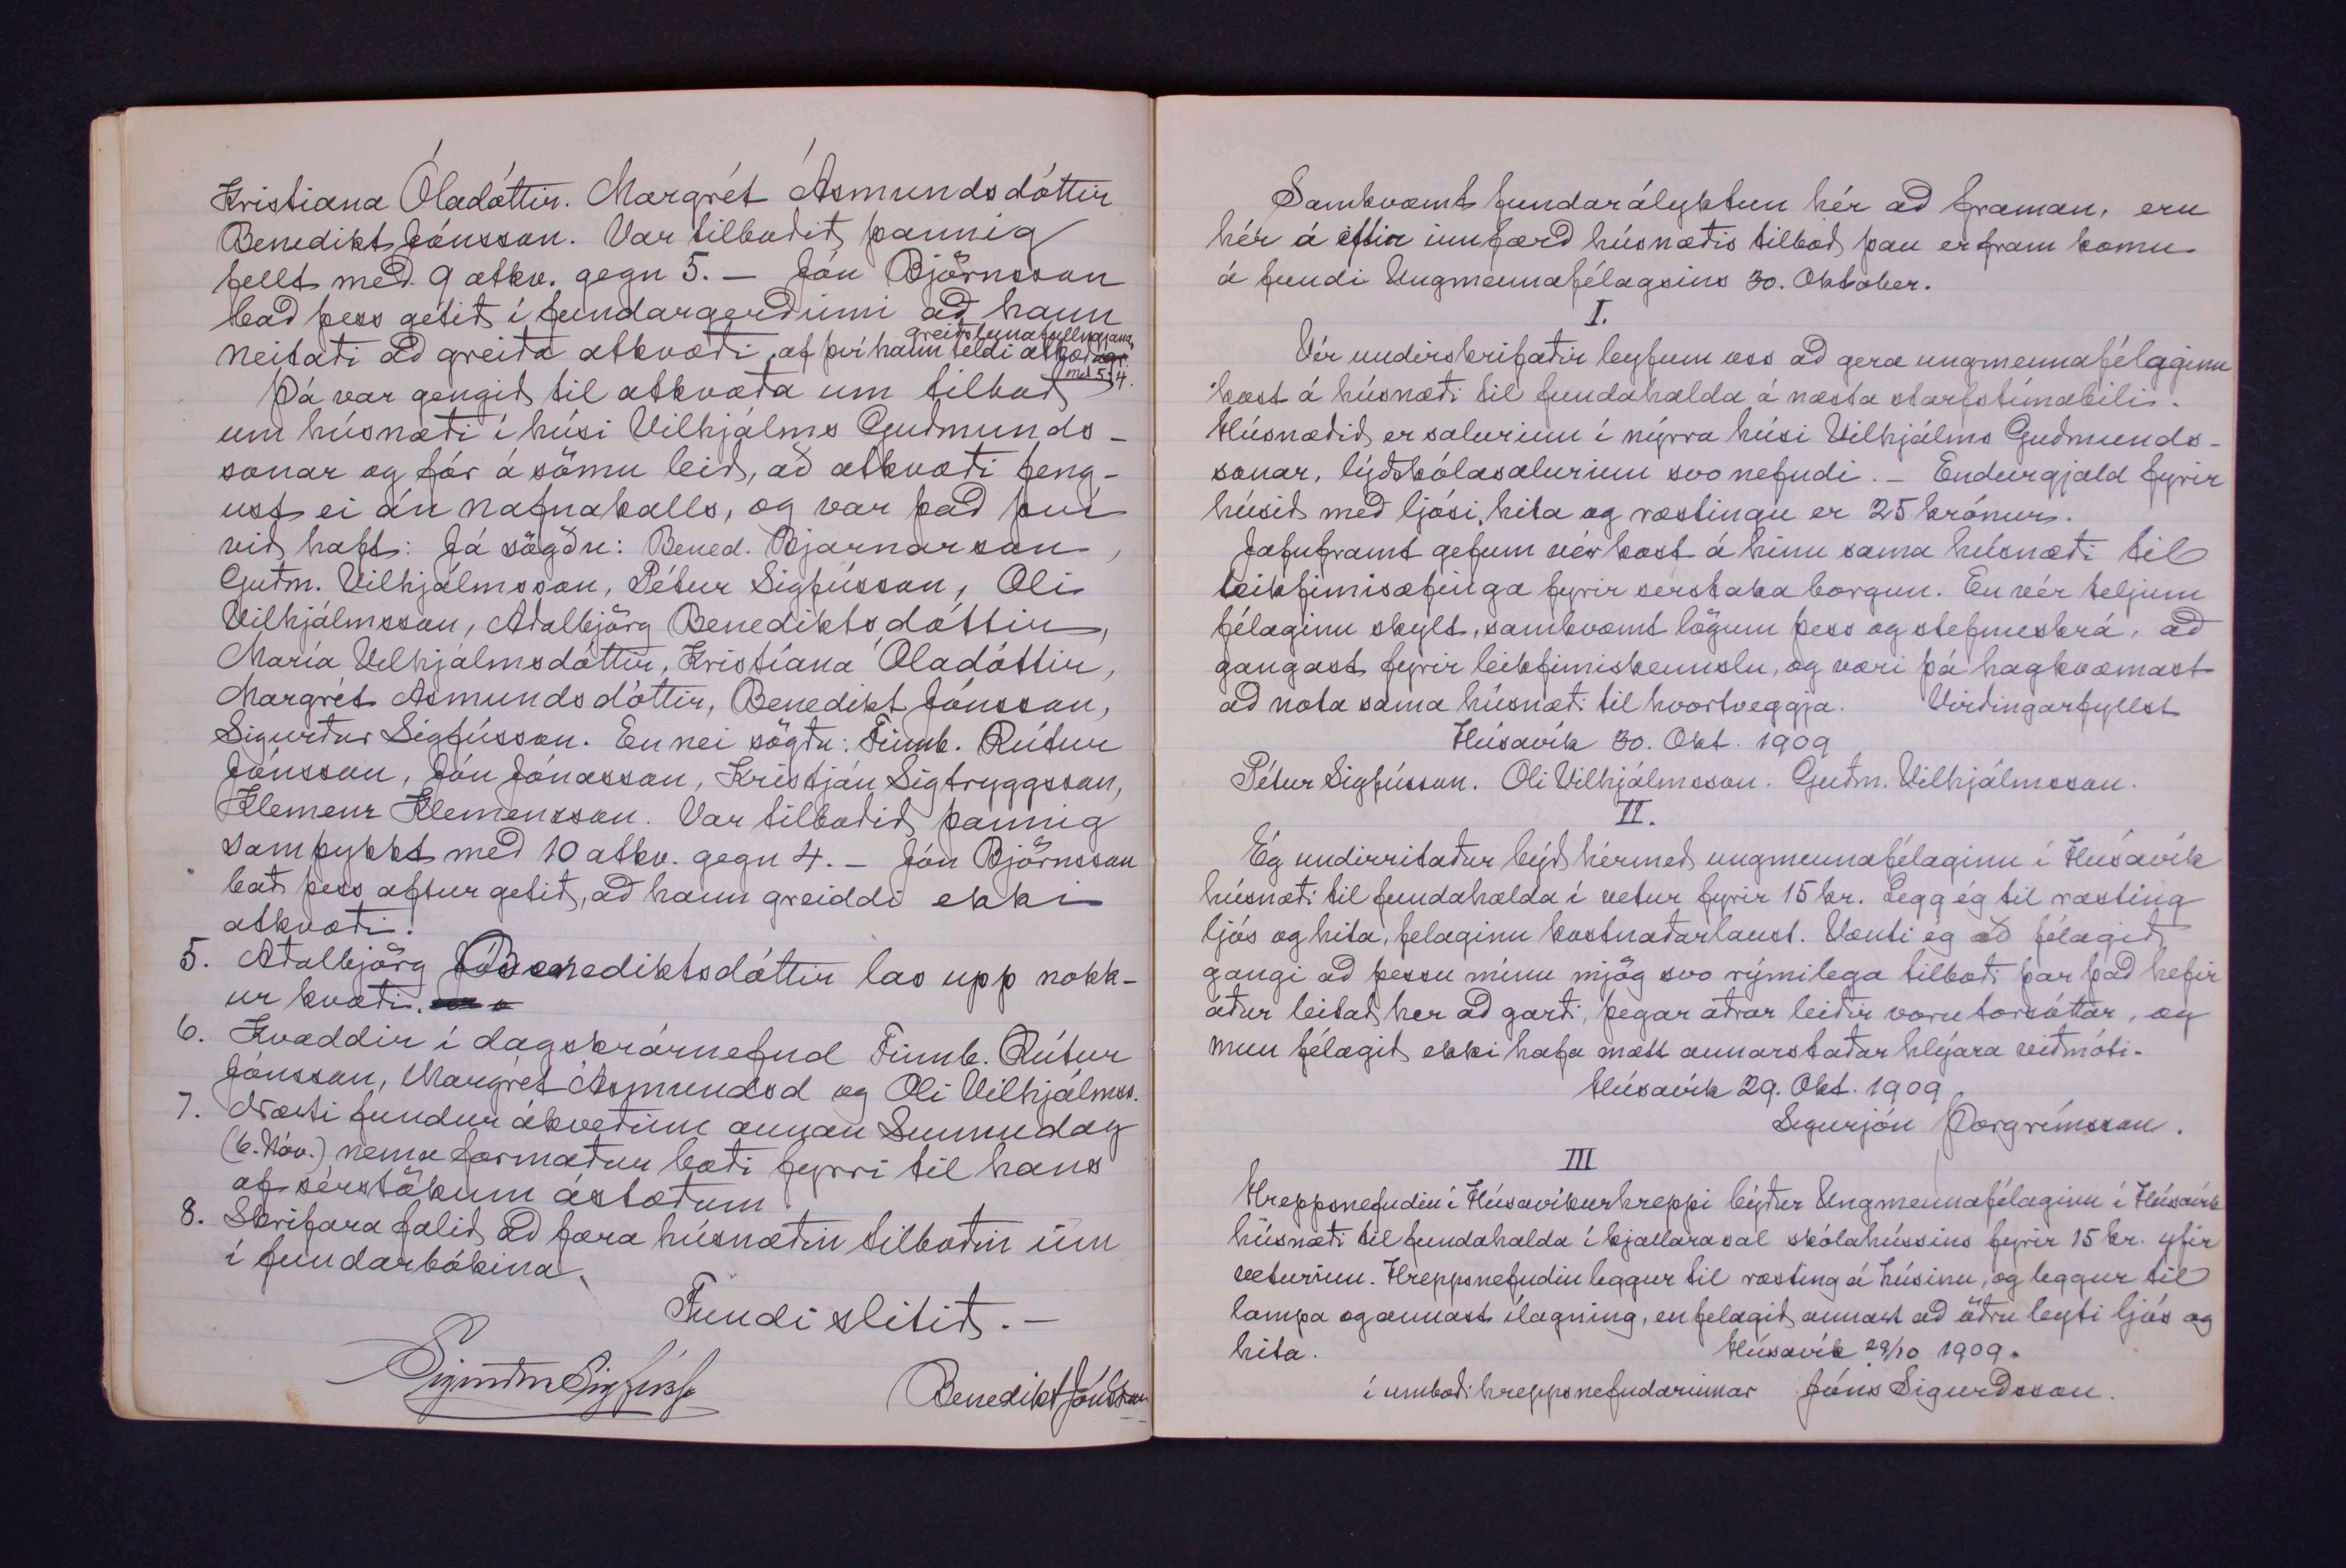 Kristiana Óladóttir. Margrét Ásmundsdóttir
Benedikt Jónsson. Var tilboðið þannig
fellt með 9 atkv. gegn 5. — Jón Björnsson
bað þess getið í fundargerðinni að hann
neitaði að greiða atkvæði, af því hann teldi
Þá var gengið til atkvæða um tilboð
um húsnæði í húsi Vilhjálms Guðmunds-
sonar og fór á sömu leið, að atkvæði feng-
ust ei án nafnakalls, og var það því
við haft: Já sögðu: Bened. Bjarnarson,
Guðm. Vilhjálmsson, Pétur Sigfússon, Oli
Vilhjálmsson, Aðalbjörg Benediktsdóttir,
María Vilhjálmsdóttir, Kristíana Óladóttir,
Margrét Asmundsdóttir, Benedikt Jónsson,
Sigurður Sigfússon. En nei sögðu: Fimb. Rútur
Jónsson, Jón Jónasson, Kristján Sigtryggsson,
Klemenz Klemensson. Var tilboðið þannig
samþykkt með 10 atkv. gegn 4. — Jón Björnsson
bað þess aftur getið, að hann greiddi ekki
atkvæði.
5. Aðalbjörg Benediktsdóttir las upp nokk-
ur kvæði.
6. Kvaddir í dagskrárnefnd Fimb. Rútur
Jónsson, Margrét Ásmundsd og Oli Vilhjálmss.
7. Næsti fundur ákveðinn annan Sunnudag
(6. Nóv.) nema formaður boði fyrri til hans
af sérstökum ástæðum.
8. Skrifara falið að færa húsnæðin tilboðin inn
í fundarbókina.
Fundi slitið. —
Sigurður Sigfússon
Benedikt Jónsson
Samkvæmt fundarályktun hér að framan, eru
hér á eftir innfærð húsnæðis tilboð þau er fram komu
á fundi Ungmennafélagsins 30. Oktober.
I.
Vér undirskrifaðir leyfum oss að gera ungmennafélaginu
kost á húsnæði til fundahalda á næsta starfstímabili.
Húsnæðið er salurinn í nýrra húsi Vilhjálms Guðmunds-
sonar, lýðskólasalurinn svo nefndi. — Endurgjald fyrir
húsið með ljósi, hita og ræstingu er 25 krónur.
Jafnframt gefum vér kost á hinu sama húsnæði til
leikfimisæfinga fyrir serstaka borgun. En vér teljum
félaginu skylt, samkvæmt lögum þess og stefnuskrá, að
gangast fyrir leikfimiskennslu, og væri þá hagkvæmast
að nota sama húsnæði til hvortveggja. Virðingarfyllst
Húsavík 30. Okt. 1909
Pétur Sigfússon. Oli Vilhjálmsson. Guðm. Vilhjálmsson.
II.
Ég undirritaður býð hérmeð ungmennafélaginu í Húsavík
húsnæði til fundahalda í vetur fyrir 15 kr. Legg ég til ræsting
ljós og hita, felaginu kostnaðarlaust. Vænti ég að félagið
gangi að þessu mínu mjög svo rýmilega tilboði þar það hefir
áður leitað her að garði, þegar aðrar leiðir voru torsóttar, og
mun félagið ekki hafa mætt annarstaðar hlýjara viðmóti.
Húsavík 29. Okt. 1909
Sigurjón Þorgrímsson.
III
Hreppsnefndin í Húsavíkurhreppi býður Ungmennafélaginu í Húsavík
húsnæði til fundahalda í kjallarasal skólahússins fyrir 15 kr. yfir
veturinn. Hreppsnefndin leggur til ræsting á húsinu, og leggur til
lampa og annast ílagning, en felagið annast að öðru leyti ljós og
hita. Húsavík 29/10 1909.
í umboði hreppsnefndarinnar Jóns Sigurðsson.